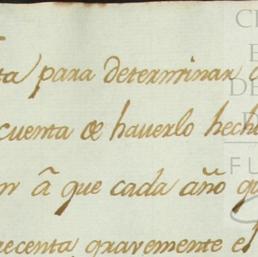 ta para determinar
cuenta de haverlo hech
n â que cada año qu
recenta gravemente el